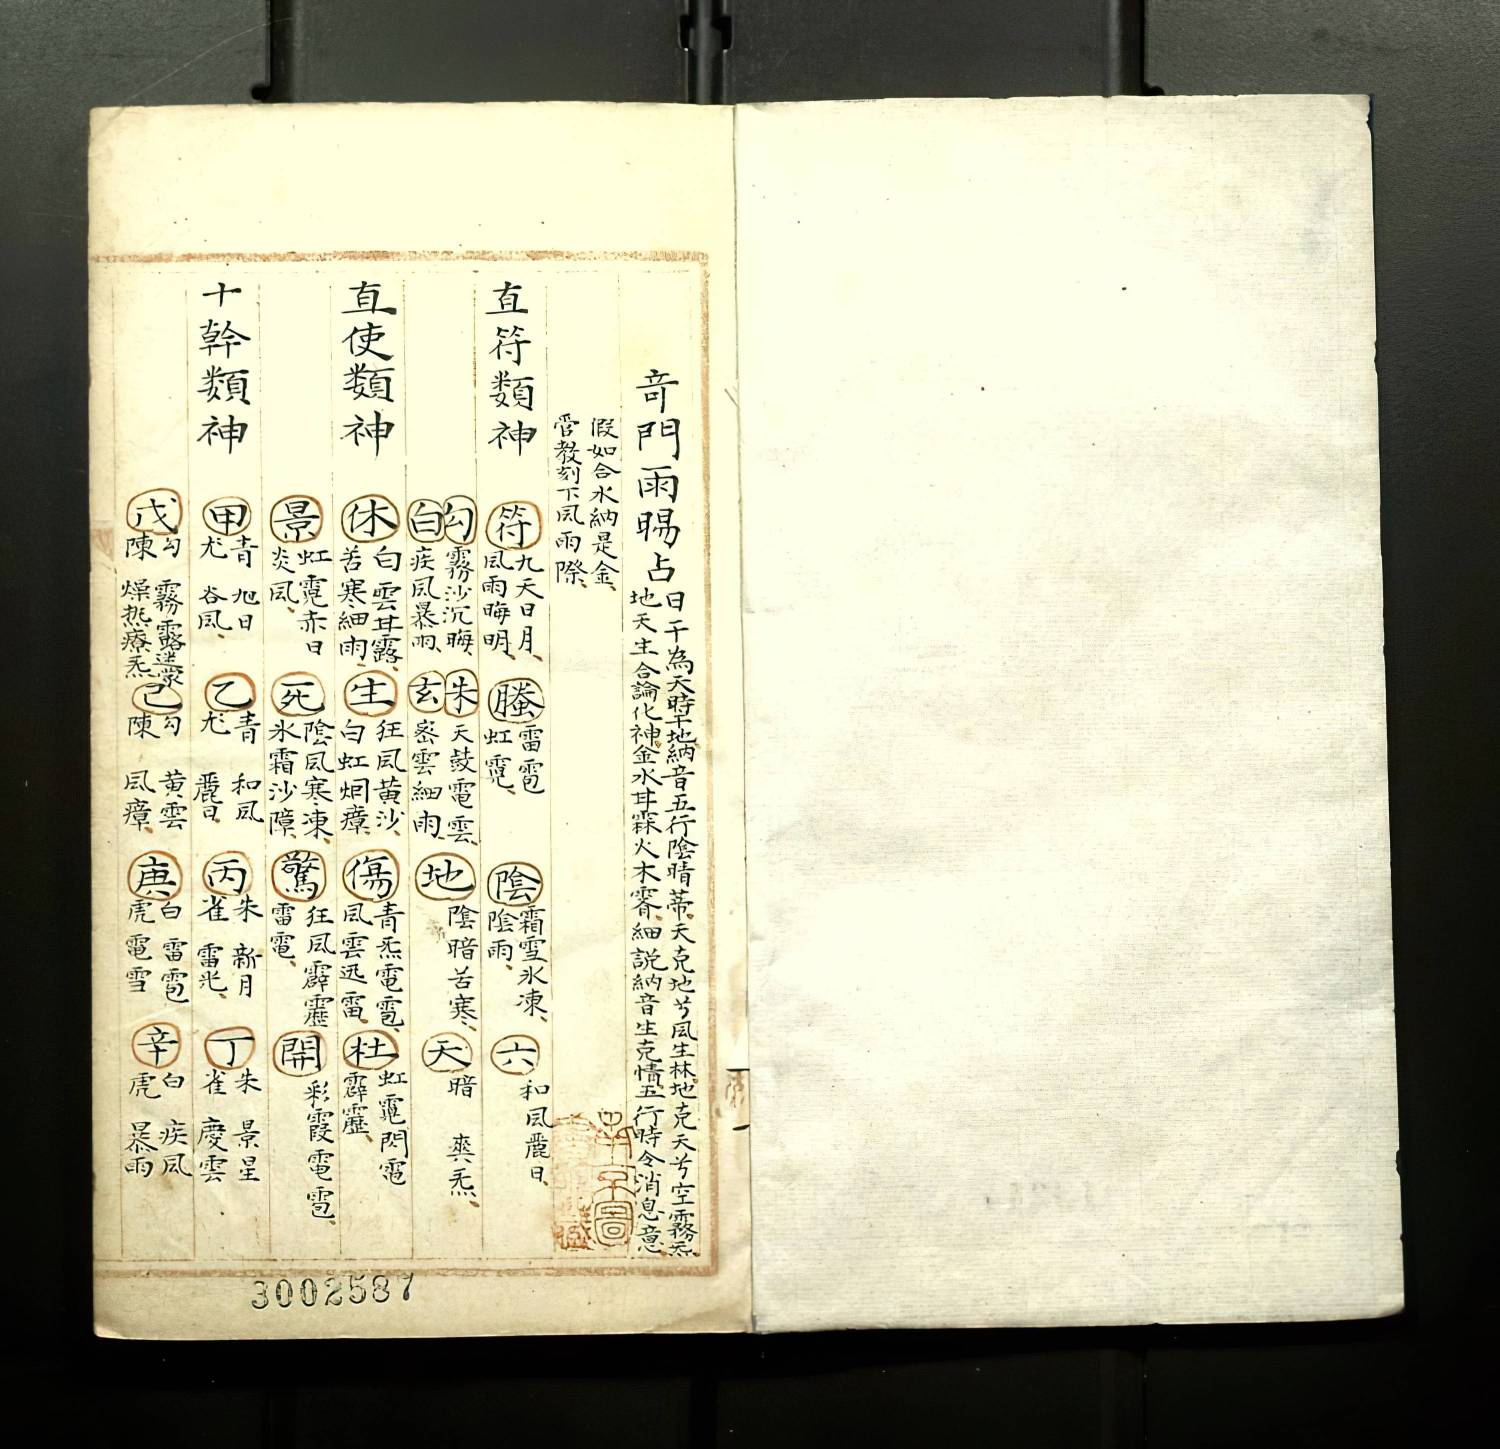 奇門雨暘占
日干為天時干地納音五行陰晴蒂天克地兮風生林地克天兮空霧炁
地天生合論化神金水甘霖火木霽細説納音生克情五行時令消息意
假如合水納是金
管教刻下風雨際
直符類神
符 九天日月風雨晦明
螣 雷雹虹霓
陰 霜雪氷凍陰雨
六 和風麗日
勾白 霧沙沉晦疾風暴雨
朱玄 天鼓電雲密雲細雨
地 陰暗苦寒
天 暗爽炁
直使類神
休 白雲甘露苦寒細雨
生 狂風黄沙白虹炯瘴
傷 青炁電雹風雲迅雷
杜 虹霓閃電霹靂
景 虹霓赤日炎風
死 陰風寒凍氷霜沙障
驚 狂風霹靂雷電
開 彩霞電雹
十幹類神
甲 青尤 旭日谷風
乙 青尤 和風麗日
丙 朱雀 新月雷光
丁 朱雀 景星慶雲
戊 勾陳 霧露迷蒙燥热療炁
己 勾陳 黄雲風瘴
庚 白虎 雷雹電雪
辛 白虎 疾風暴雨
3002587